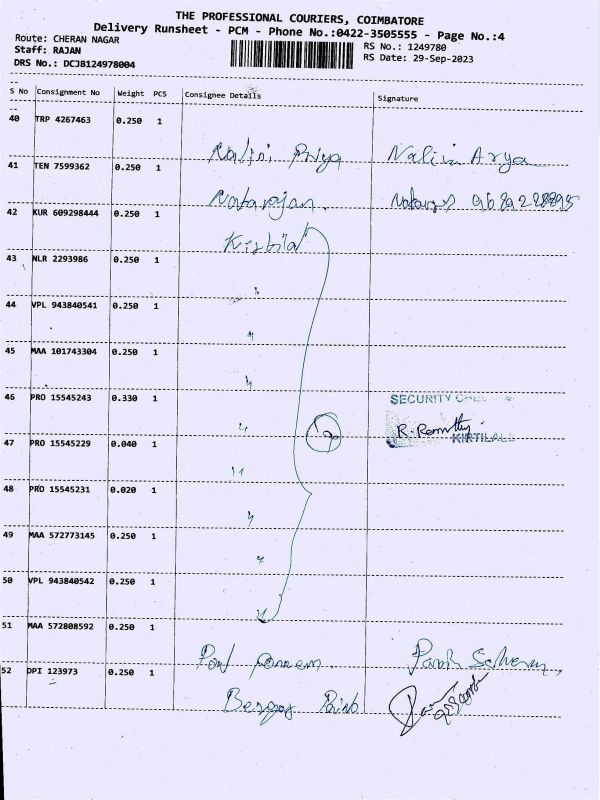 THE PROFESSIONAL COURIERS, COIMBATORE
Delivery Runsheet - PCM - Phone No.:0422-3505555 - Page No.:4
Route: CHERAN NAGAR
RS No.: 1249780
Staff: RAJAN
RS Date: 29-Sep-2023
DRS No.: DCJB124978004
S No Consignment No Weight PCS Consignee Details Signature
40 TRP 4267463 0.250 1
Nalini Priya Nalin Arya
41 TEN 7599362 0.250 1
Natarajan.
42 KUR 609298444 0.250 1
43 NLR 2293986 0.250 1
44 VPL 943840541 0.250 1
45 MAA 101743304 0.250 1
46 PRO 15545243 0.330 1
SECURITY
R.
KIRTILALS
47 PRO 15545229 0.040 1
48 PRO 15545231 0.020 1
49 MAA 572773145 0.250 1
50 VPL 943840542 0.250 1
51 MAA 572808592 0.250 1
52 DPI 123973 0.250 1